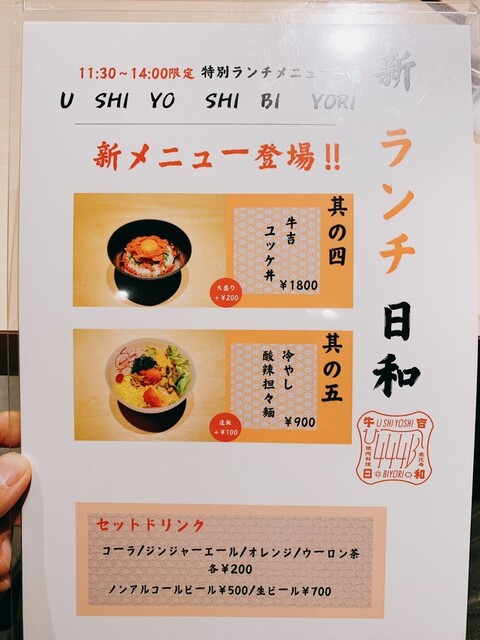 11:30~14:00限定 特別ランチメニュー
U SHI YO SHI BI YORI
新ランチ日和
新メニュー登場!!
其の四
牛吉
ユッケ丼
¥1800
大盛り
+¥200
其の五
冷やし
酸辣担々麺
¥900
追飯
+¥100
牛 USHIYOSHI 吉
焼肉料理
恵比寿
日 BIYORI 和
セットドリンク
コーラ/ジンジャーエール/オレンジ/ウーロン茶
各¥200
ノンアルコールビール¥500/生ビール¥700